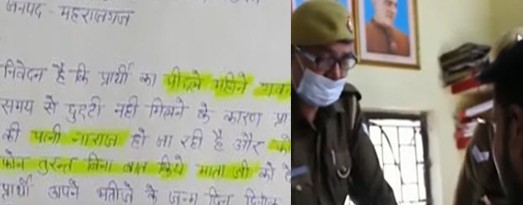 जनपद - महराजगंज
निवेदन है कि प्रार्थी का पिछले महिने
समय से छुट्टी नही मिलने के कारण
की पत्नी नाराज हो जा रही है और
फोन तुरन्त बिना बात किये माता जी को दे
प्रार्थी अपने भतीजे के जन्म दिन